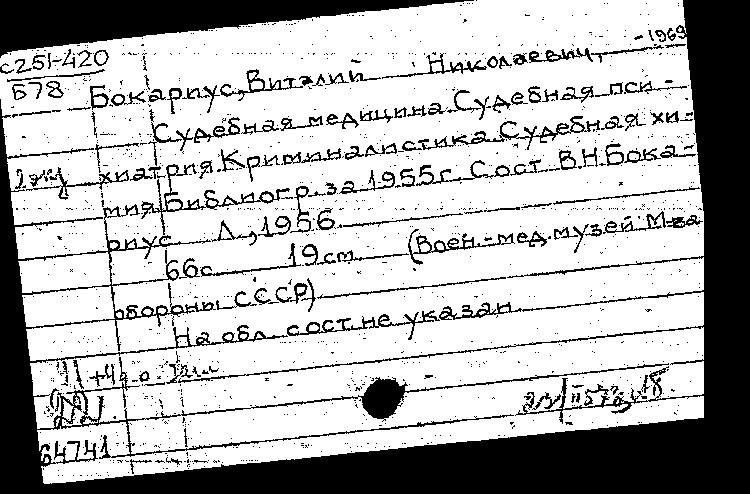 с251-420
Б78
-1969
Бокариус, Виталий Николаевич,
Судебная медицина. Судебная пси-
2 экз хиатрия. Криминалистика. Судебная хи-
мия. Библиогр. за 1955г. Сост. В.Н. Бока-
риус Л., 1956.
66с. 19см. (Воен.-мед. музей М-ва
обороны СССР)
На обл. сост. не указан.
64741